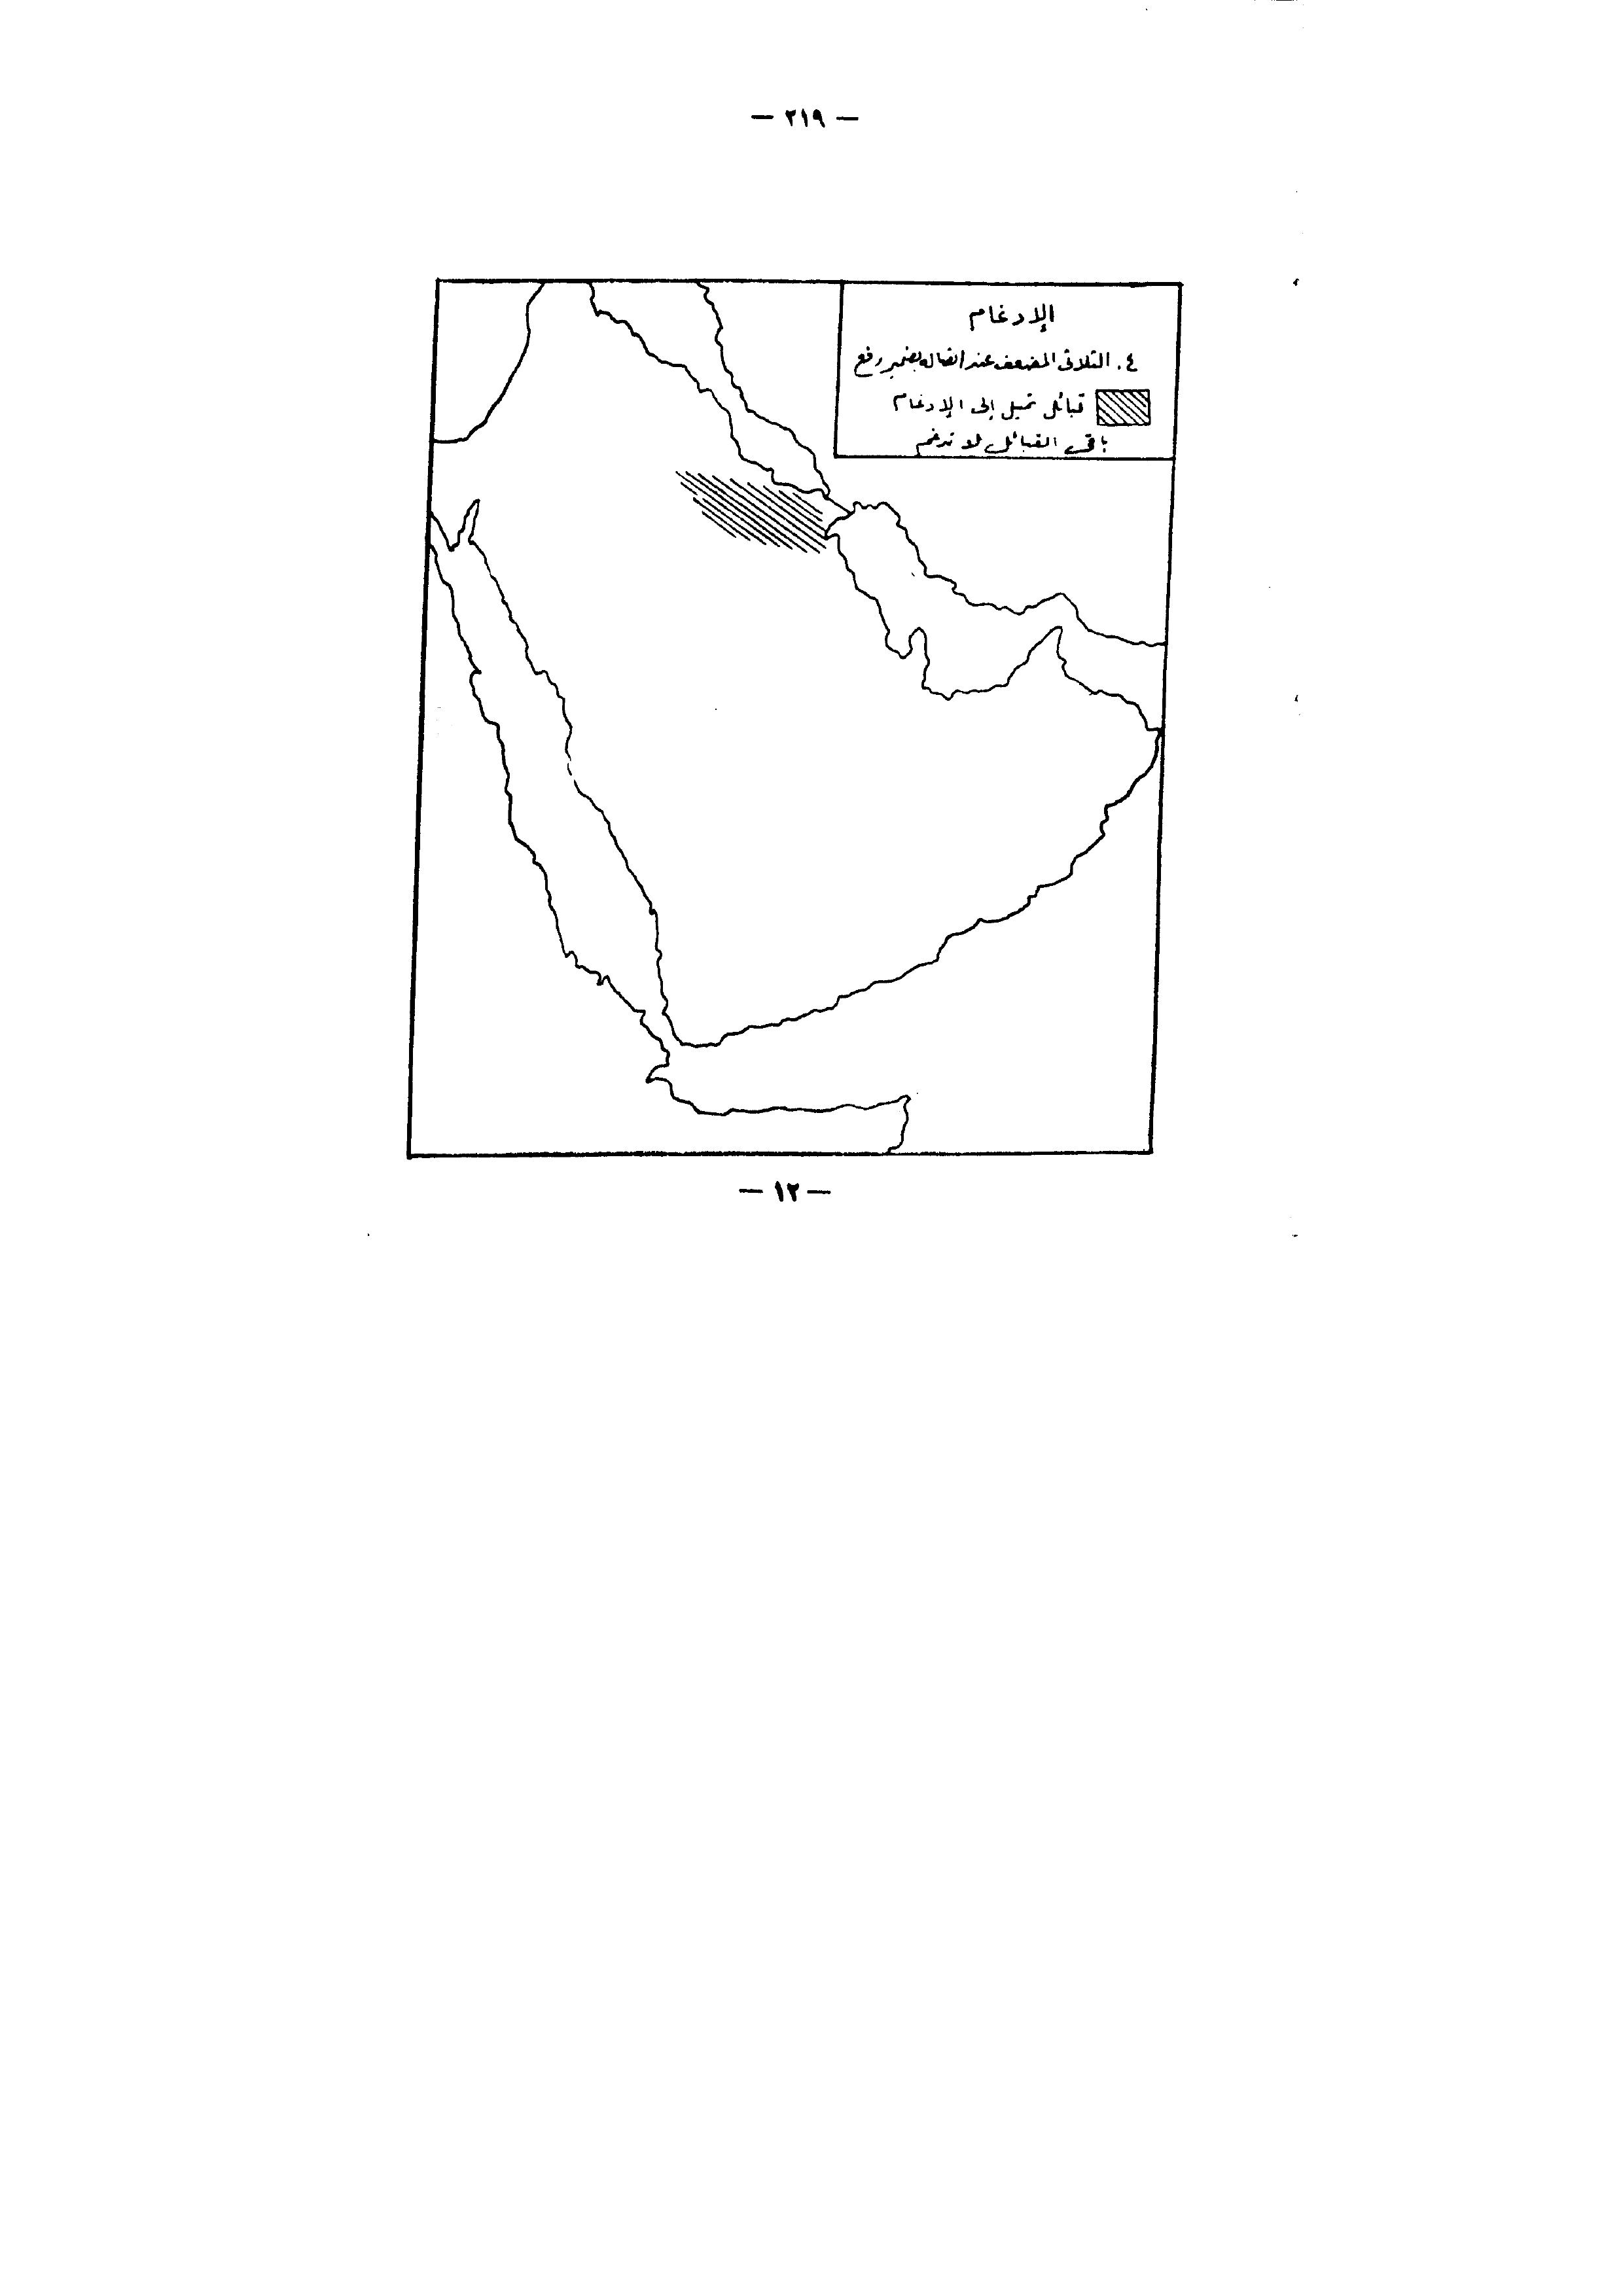 — ٢١٩ —
الإدغام
٤. الثلاثى المضعف عند اتصاله بضمير رفع
قبائل تميل إلى الإدغام
باقى القبائل لا تدغم
— ١٢ —